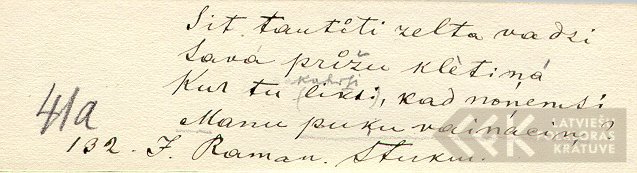 Sit tautēti zelta vadzi
Savā prīžu klētiņā
kadrsi
Kur tu liksi, kad noņemsi
Manu puķu vaiņaciņ?
41a
132. J. Raman. Stukm.
LATVIEŠU
FOLKLORAS
KRĀTUVE